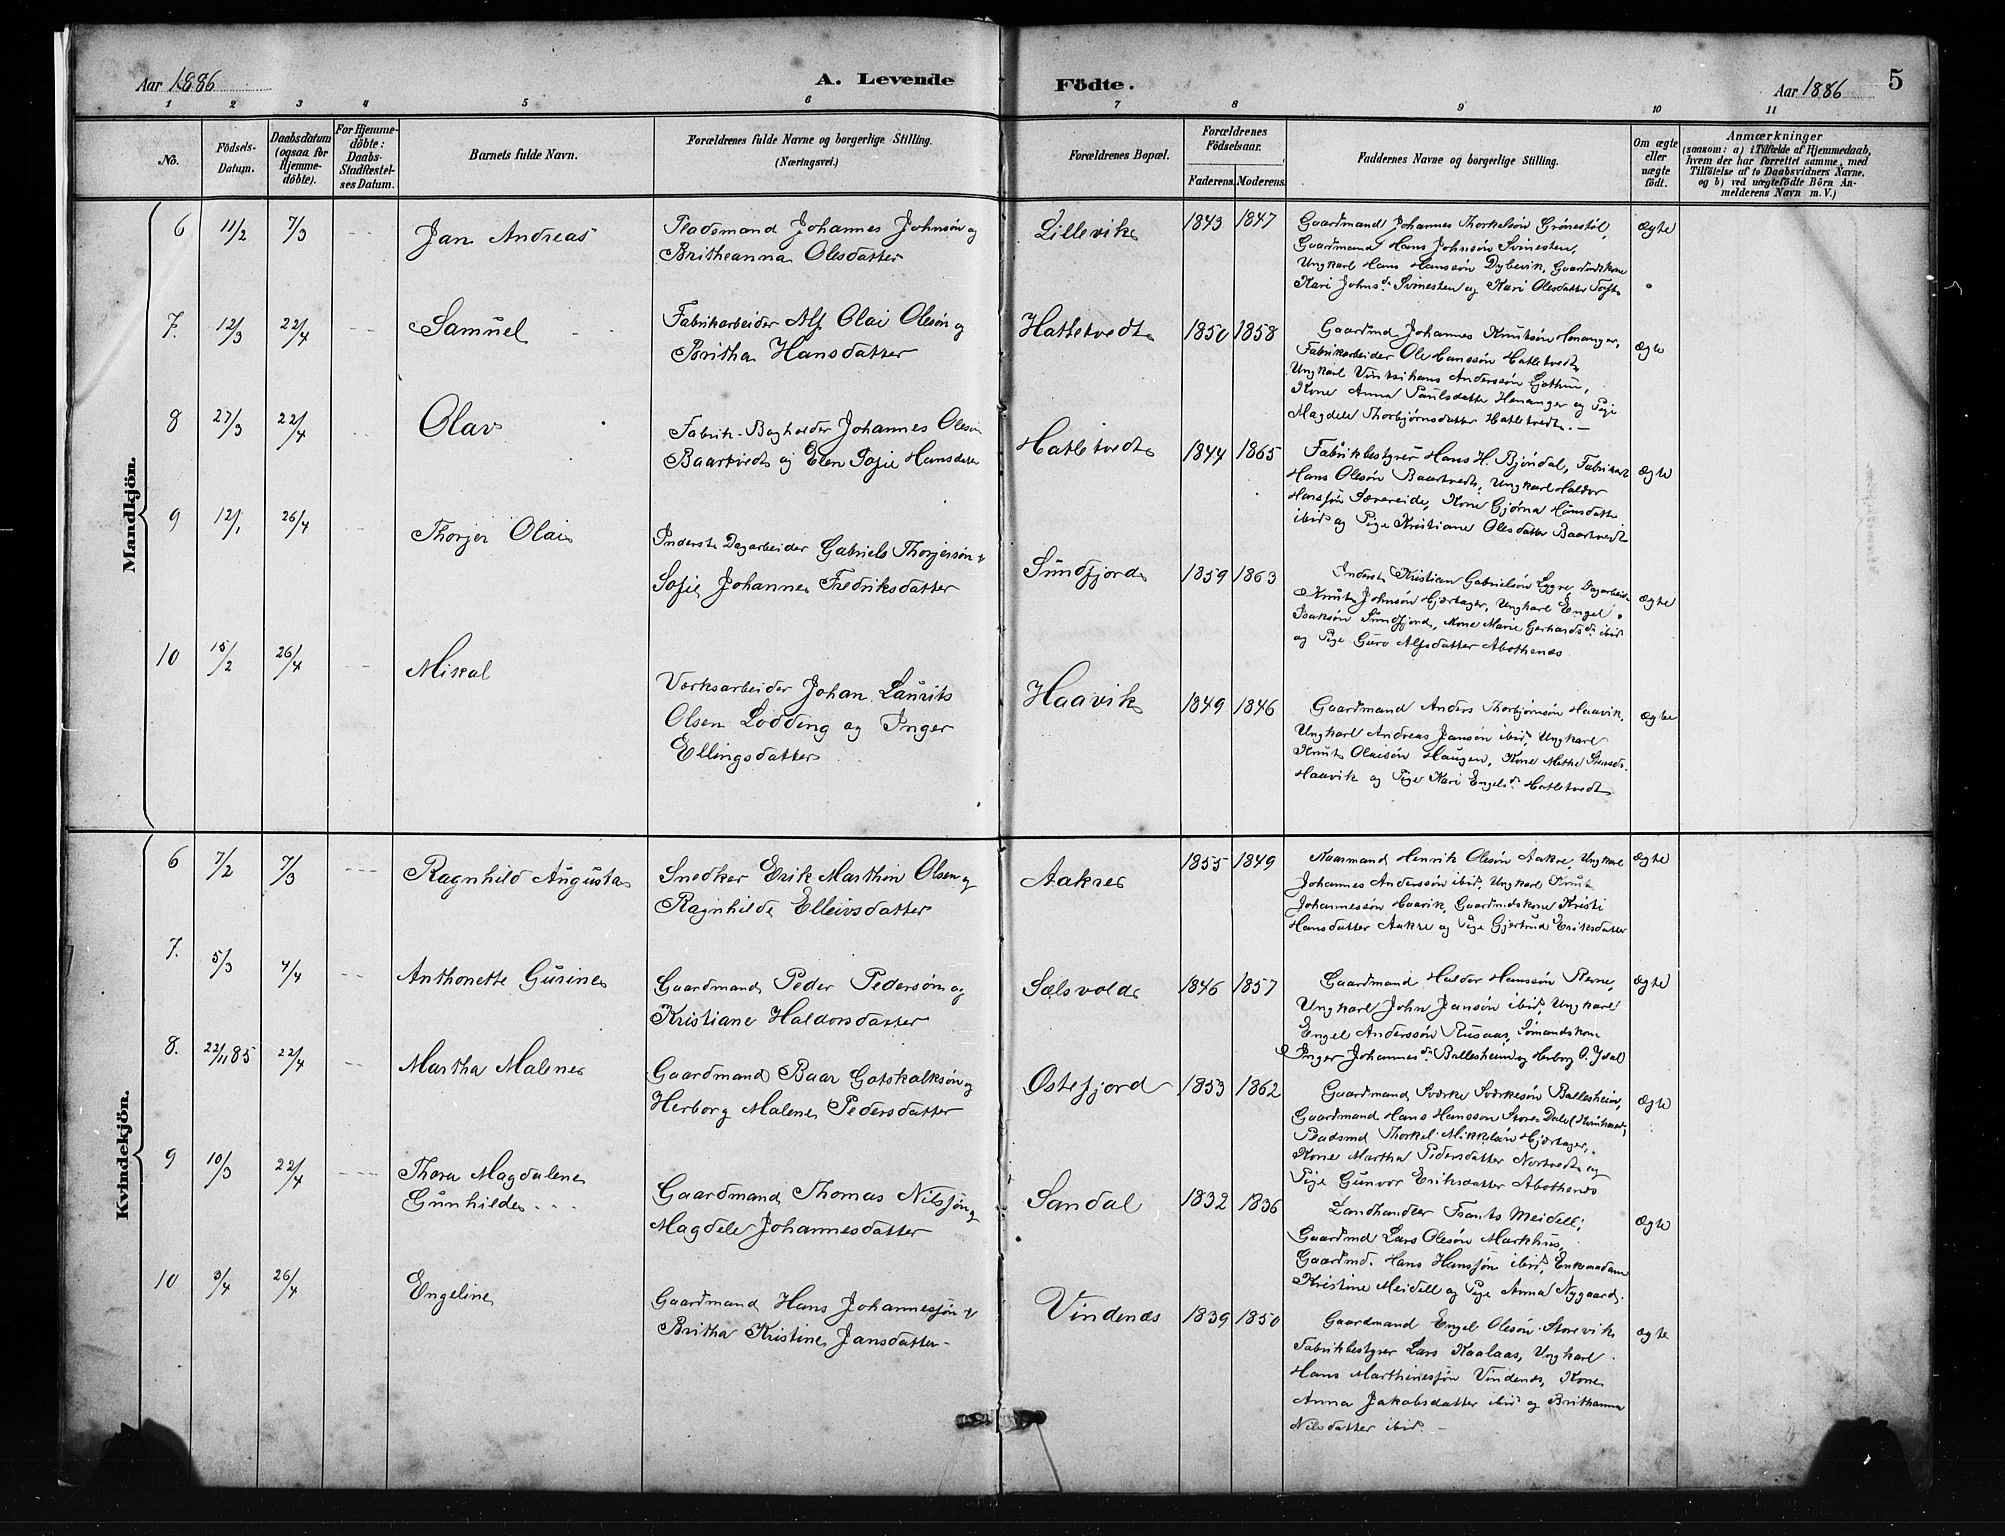 Aar 1886
A. Levende
Födte.
Aar 1886
5
1 2 3 4 5 6 7 8 9 10 11
No.
Födsels-
Datum.
Daabsdatum
(ogsaa for
Hjemme-
döbte).
For Hjemme-
döbte:
Daabs-
Stadfæstel-
ses Datum.
Barnets fulde Navn.
Forældrenes fulde Navne og borgerlige Stilling.
(Næringsvei.)
Forældrenes Bopæl.
Forældrenes
Födselsaar.
Faderens. Moderens.
Faddernes Navne og borgerlige Stilling.
Om ægte
eller
uægte
födt.
Anmærkninger
(saasom: a) i Tilfælde af Hjemmedaab,
hvem der har forrettet samme, med
Tilföielse af to Daabsvidners Navne.
og b) ved uægtefödte Börn An-
melderens Navn m.V.)
Mandkjön.
6 11/2 7/3 Jan Andreas
Pladsmand Johannes Johnsøn og
Britheanna Olesdatter
Lillevik 1843 1847
Gaardmand Johannes Thorkelsøn Grønestöl,
Gaardmand Hans Johnsøn Svinesten,
Ungkarl Hans Hanssøn Dybevik, Gaardmdskone
Kari Johnsd. Svinesten og Kari Olesdatter Toft
ægte
7. 12/3 22/4 Samuel
Fabrikarbeider Alf Olai Olesøn og
Britha Hansdatter
Hatletvedt 1850 1858
Gaardmd Johannes Knutsøn Henanger,
Fabrikarbeider Ole Hanssøn Hatletvedt,
Ungkarl Anderssøn
Kone Anna Paulsdatter Henanger og Pige
Magdele Thorbjørnsdatter Hatletvedt. —
ægte
8 27/3 22/4 Olav
Fabrik-Bogholder Johannes Olesøn
Baartvedt og Elen Sofie Hansdatter
Hatletvedt 1844 1865
Fabrikbestyrer Hans H. Bjøndal,
Hans Olesøn Baartvedt, Ungkarl Haldor
Hanssøn Sævereide, Kone Gjørna Hansdatter
ibid og Pige Kristiane Olesdatter Baartvedt
ægte
9 12/1 26/4 Thorjer Olai
Inderst Dagarbeider Gabriels Thorjersøn &
Sofie Johanne Fredriksdatter
Sundfjord 1859 1863
Inderst Kristian Gabrielsøn Eggre, Dagarbeid.
Knut Johnsøn Hjertager, Ungkarl Engel
Isaksøn Sundfjord, Kone Marie Gerhardsd. ibid
og Pige Guro Alfsdatter Abothenæs
ægte
10 15/2 26/4 Mikal
Værksarbeider Johan Laurits
Olsen Lodding og Inger
Ellingsdatter
Haavik 1849 1846
Gaardmand Anders Thorbjørnsøn Haavik,
Ungkarl Andreas Jansøn ibid, Ungkarl
Knut Olaisøn Haugen, Kone Mette Stensd.
Haavik og Pige Kari Engelsd. Hatletvedt
ægte
Kvindekjön.
6 7/2 7/3 Ragnhild Augusta
Snedker Erik Marthin Olsen og
Ragnhilde Elleivsdatter
Aakre 1855 1849
Kaarmand Henrik Olesøn Aakre, Ungkarl
Johannes Anderssøn ibid, Ungkarl Knut
Johannessøn Haavik, Gaardmdskone Kristi
Hansdatter Aakre og Pige Gjertrud Eriksdatter
ægte
7. 5/3 4/4 Anthonette Gurine
Gaardmand Peder Pedersøn og
Kristiane Haldorsdatter
Sælsvold 1846 1857
Gaardmand Haldor Hanssøn Revne,
Ungkarl John Jansøn ibid, Ungkarl
Engel Anderssøn Rusaas, Sömandskone
Inger Johannesd. Ballesheim og Herborg O. Ydal
ægte
8. 22/11 85 22/4 Martha Malene
Gaardmand Baar Gotskalksøn og
Herborg Malene Pedersdatter
Østefjord 1853 1862
Gaardmand Sværke Sværkesøn Ballesheim,
Gaardmand Hans Hanssøn Store-Dale (Kvinherred)
Pladsmd Thorkel Mikkelsøn Hjertager,
Kone Martha Pedersdatter Nortvedt og
Pige Gunvor Eriksdatter Abothenæs
ægte
9 10/3 22/4 Thora Magdalene
Gunhilde
Gaardmand Thomas Nilssøn og
Magdele Johannesdatter
Sandal 1832 1836
Landhandler Frants Meidell,
Gaardmd Lars Olesøn Markhus,
Gaardmd. Hans Hanssøn ibid, Enkemadam
Kristine Meidell og Pige Anna Nygaard.
ægte
10 3/4 26/4 Engeline
Gaardmand Hans Johannessøn &
Britha Kristine Jansdatter —
Vindenæs 1839 1850
Gaardmand Engel Olesøn Storevik
Fabrikbestyrer Lars Kaalaas, Ungkarl
Hans Marthinessøn Vindenæs, Kone
Anna Jakobsdatter ibid og Brithanna
Nilsdatter ibid. —
ægte